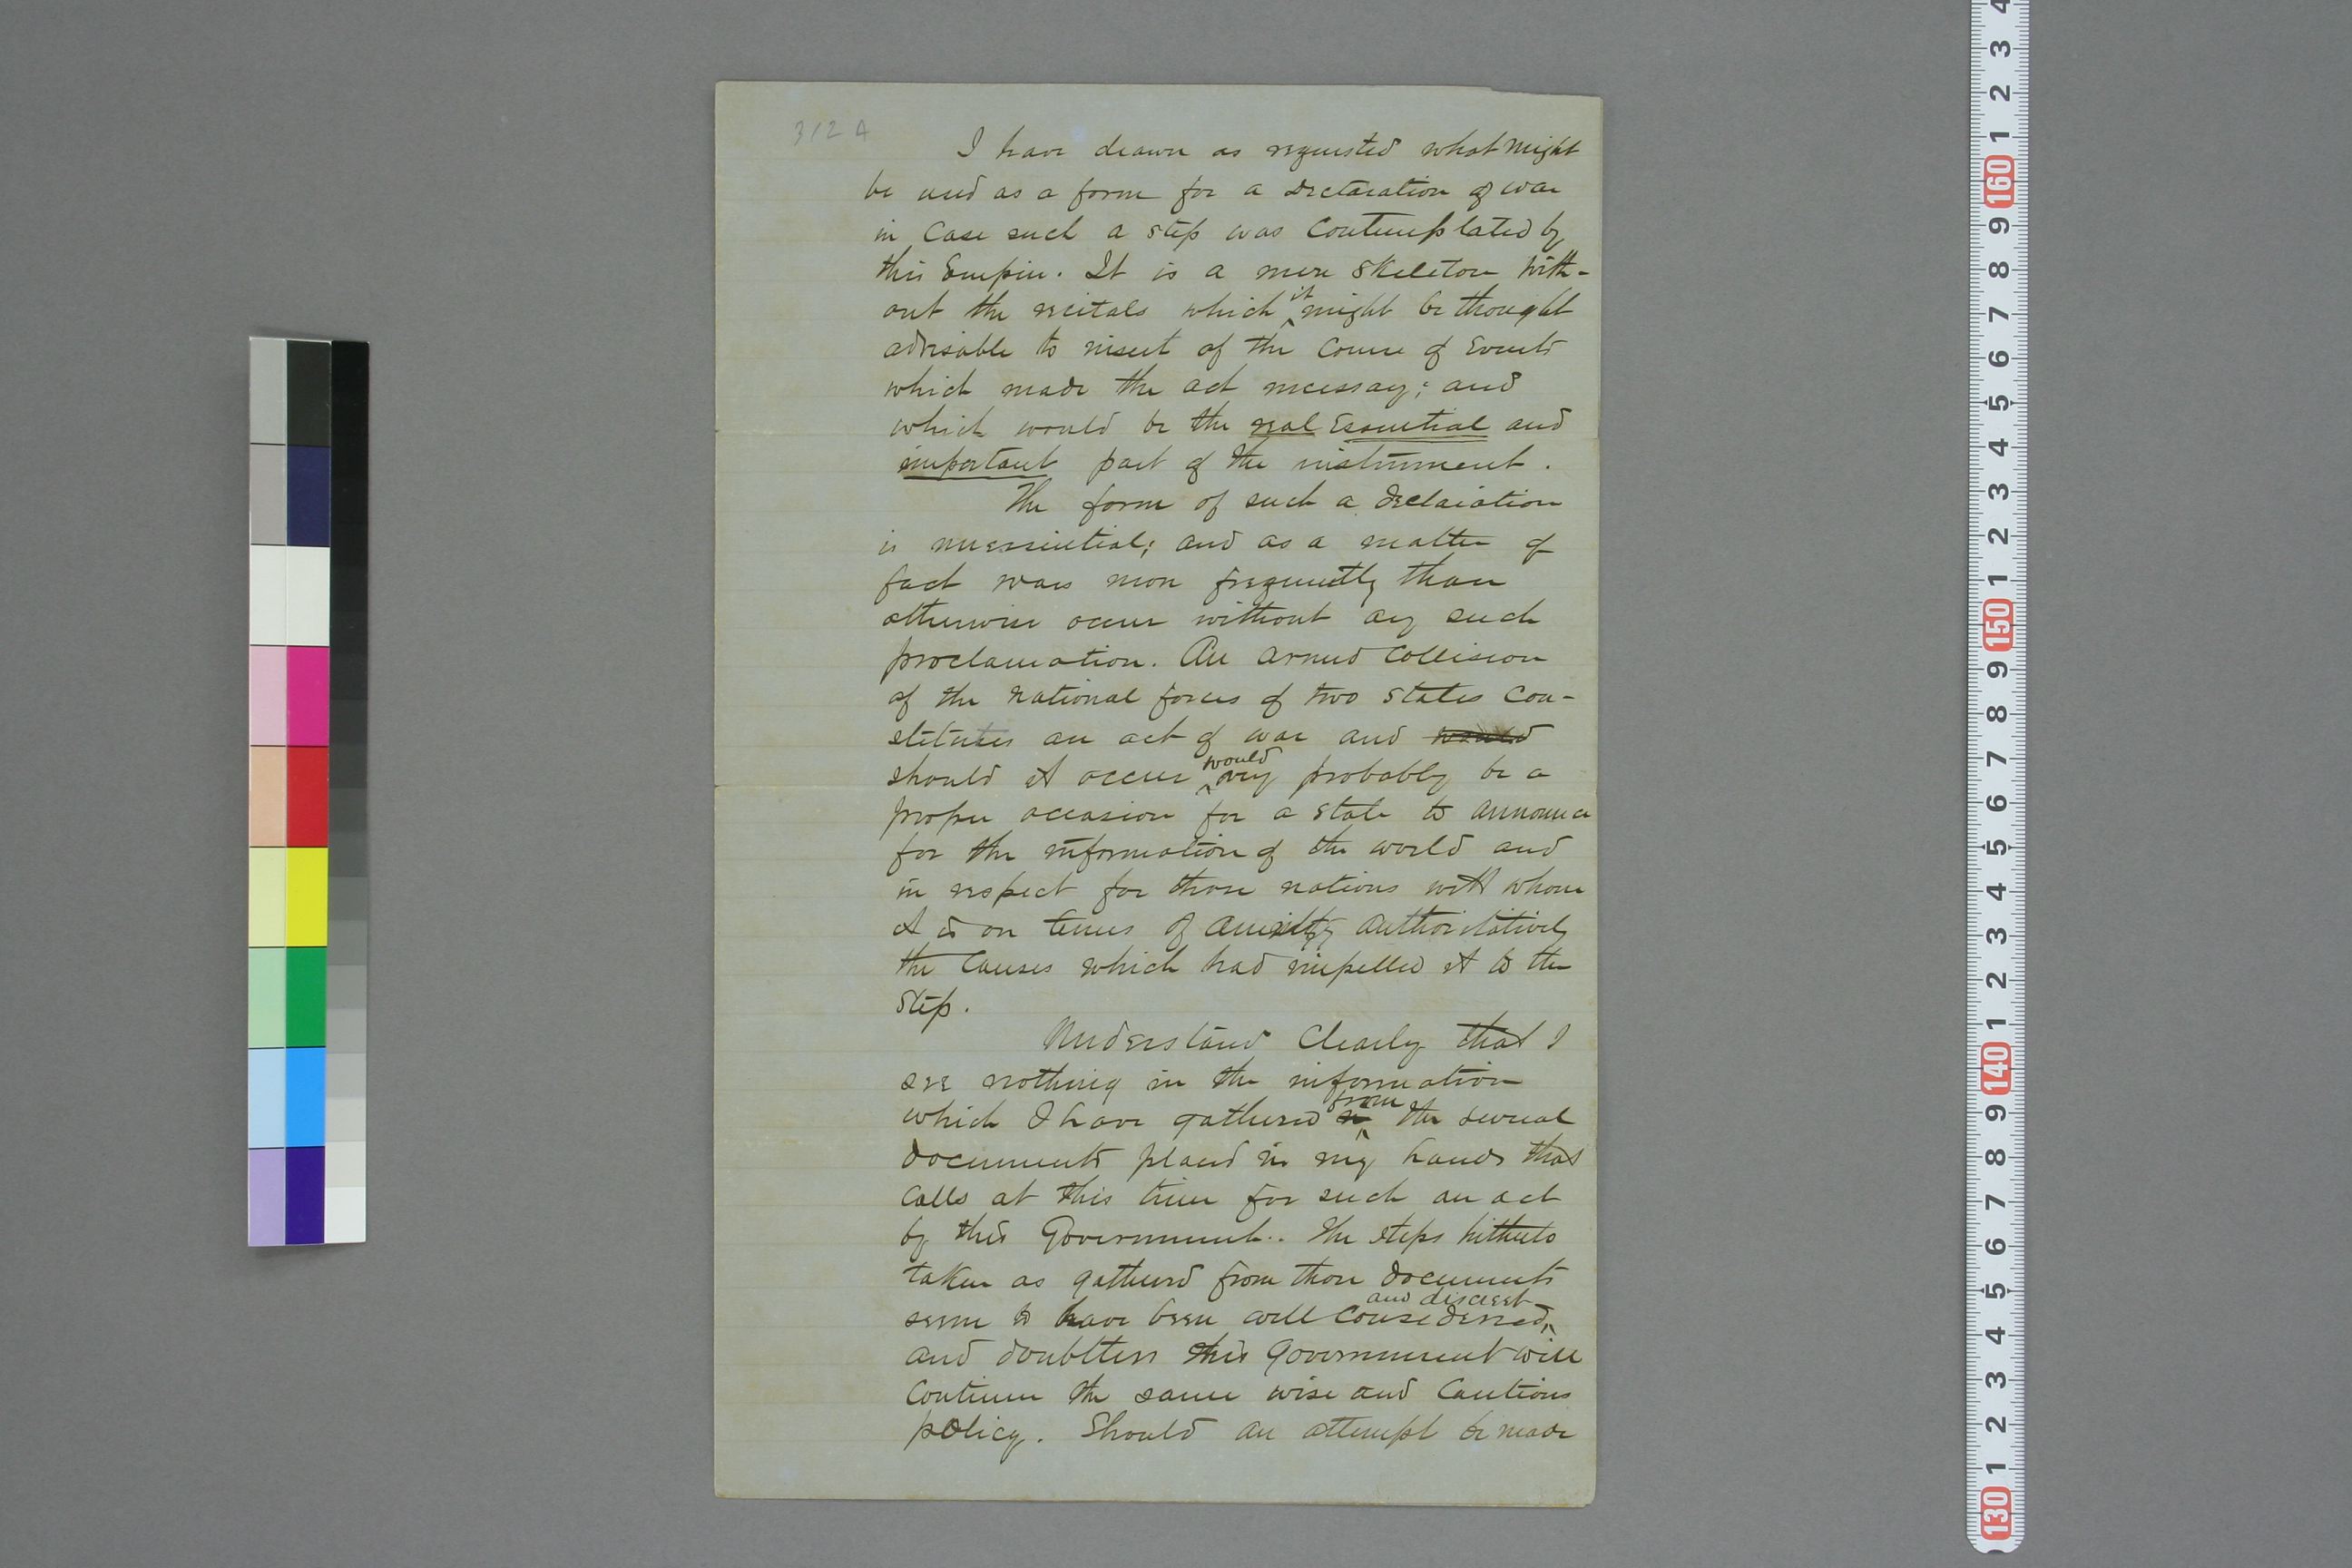 312 A
I have drawn as requested what might
be used as a form for a declaration of war
in case such a step was contemplated by
this Empire. It is a mere skeleton with-
out the recitals which it might be thought
advisable to insert of the course of Events
which made the act necessary; and
which would be the real Essential and
important part of the instrument.
The form of such a declaration
is unessential; and as a matter of
fact wars more frequently than
otherwise occur without any such
proclamation. An armed collision
of the national forces of two states con-
stitutes an act of war and would
should it occur would very probably be a
proper occasion for a state to announce
for the information of the world and
in respect for those nations with whom
it is on terms of amity authoritatively
the causes which had impelled it to the
step.
Understand clearly that I
see nothing in the information
which I have gathered from the several
documents placed in my hands that
calls at this time for such an act
by this Government. The steps hitherto
taken as gathered from those documents
seem to have been well considered, and discreet
and doubtless this Government will
continue the same wise and cautious
policy. Should an attempt be made
4
3
2
1
160
9
8
7
6
5
4
3
2
1
150
9
8
7
6
5
4
3
2
1
140
9
8
7
6
5
4
3
2
1
130